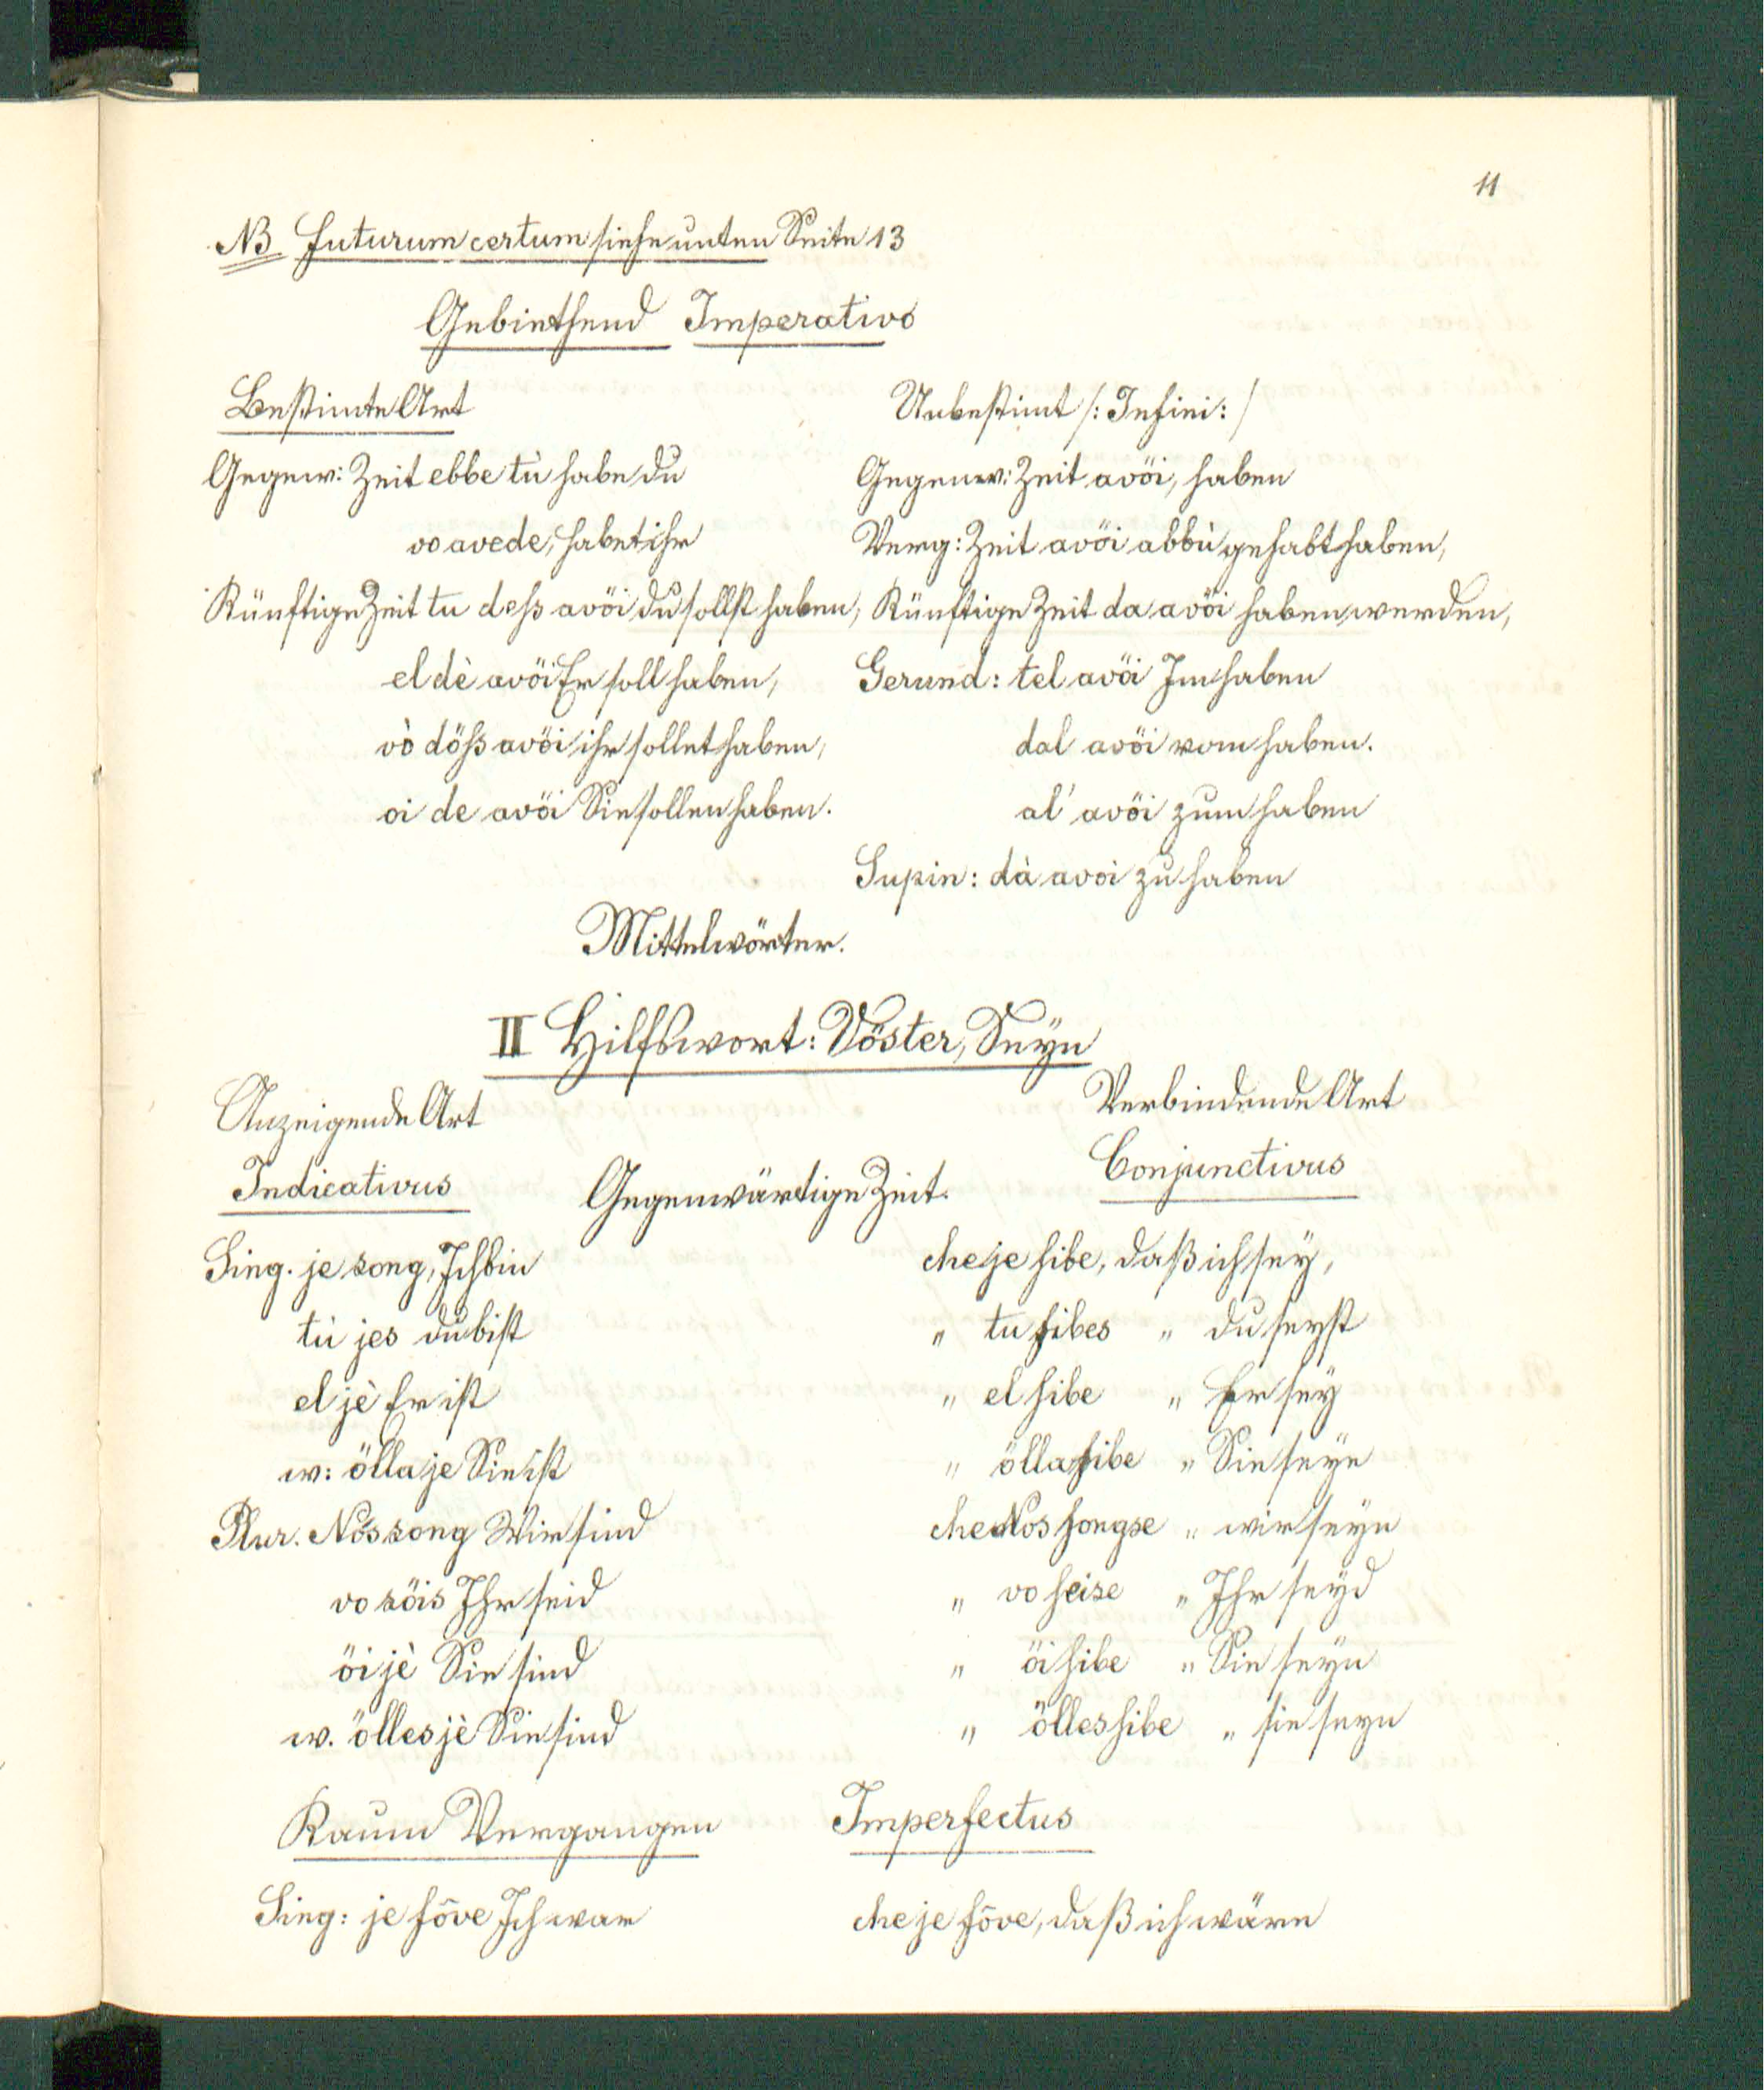 11
NB futurum certum siehe unten Seite 13
Gebiethend Imperativo
Bestimte Art Unbestimt /: Infini: /
Gegenw: Zeit ebbe tù habe du Gegenw: Zeit avöi, haben
vo avede, habet ihr Verg: Zeit avöi abbù gehabt haben,
Künftige Zeit tu deß avöi du sollst haben, Künftige Zeit da avöi haben werden,
el dè avöi Er soll haben, Gerund: tel avöi Im haben
vò döß avöi ihr sollet haben, dal avöi vom haben.
oi de avöi Sie sollen haben. al' avöi zum haben
Supin: dà avoi zu haben
Mittelwörter.
II Hilfswort: Vöster, Seyn
Anzeigende Art Verbindende Art
Indicativus Gegenwärtige Zeit. Conjunctivus
Sing. je song, Ich bin che je sibe, daß ich sey,
tù jes du bist " tu sibes " du seyst
el jè Er ist " el sibe " Er sey
w: ölla je Sie ist " ölla sibe " Sie seye
Plur. Nos song Wir sind che Nos songse " wir seyn
vo söis Ihr seid " vo seise " Ihr seyd
öi jè Sie sind " öi sibe " Sie seyn
w. ölles jè Sie sind " ölles sibe " sie seyn
Kaum Vergangen Imperfectus
Sing: je fōve Ich war che je fōve, daß ich wäre